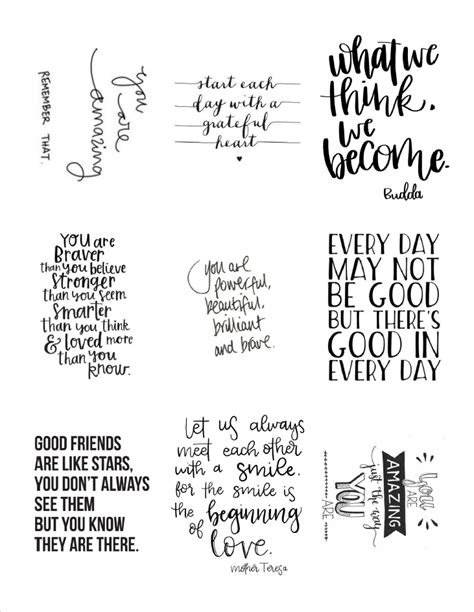 you are
amazing
REMEMBER THAT.
start each
day with a
grateful
heart
what we
think.
we
become.
Budda
YOU are
BRAVER
than YOU believe
STRONGER
than YOU seem
smarter
than YOU think
& loved more
than YOU
know.
you are
powerful,
beautiful,
brilliant
and brave.
EVERY DAY
MAY NOT
BE GOOD
BUT THERE'S
GOOD IN
EVERY DAY
GOOD FRIENDS
ARE LIKE STARS,
YOU DON'T ALWAYS
SEE THEM
BUT YOU KNOW
THEY ARE THERE.
Let us always
meet each other
with a smile.
for the smile is
the beginning
of
love.
mother Teresa
YOU
ARE
AMAZING
just the way
YOU
ARE